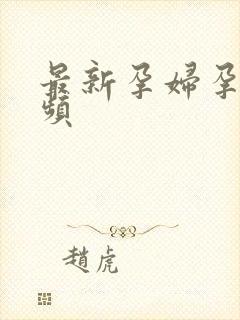 最新孕婦孕
頻
趙虎